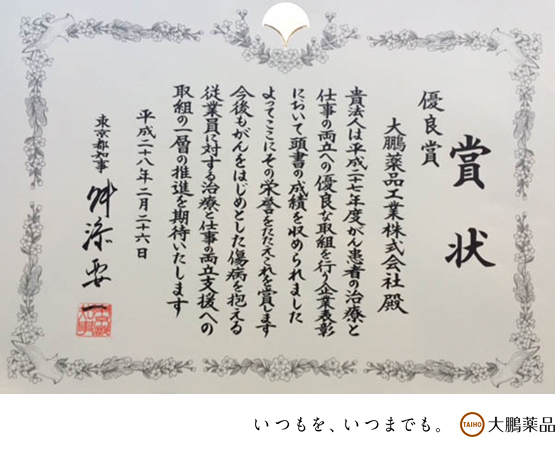 賞状
優良賞
大鵬薬品工業株式会社 殿
貴法人は平成二十七年度がん患者の治療と
仕事の両立への優良な取組を行う企業表彰
において頭書の成績を収められました
よってここにその栄誉をたたえこれを賞します
今後もがんをはじめとした傷病を抱える
従業員に対する治療と仕事の両立支援への
取組の一層の推進を期待いたします
平成二十八年二月二十六日
東京都知事 舛添要一
いつもを、いつまでも。
TAIHO 大鵬薬品